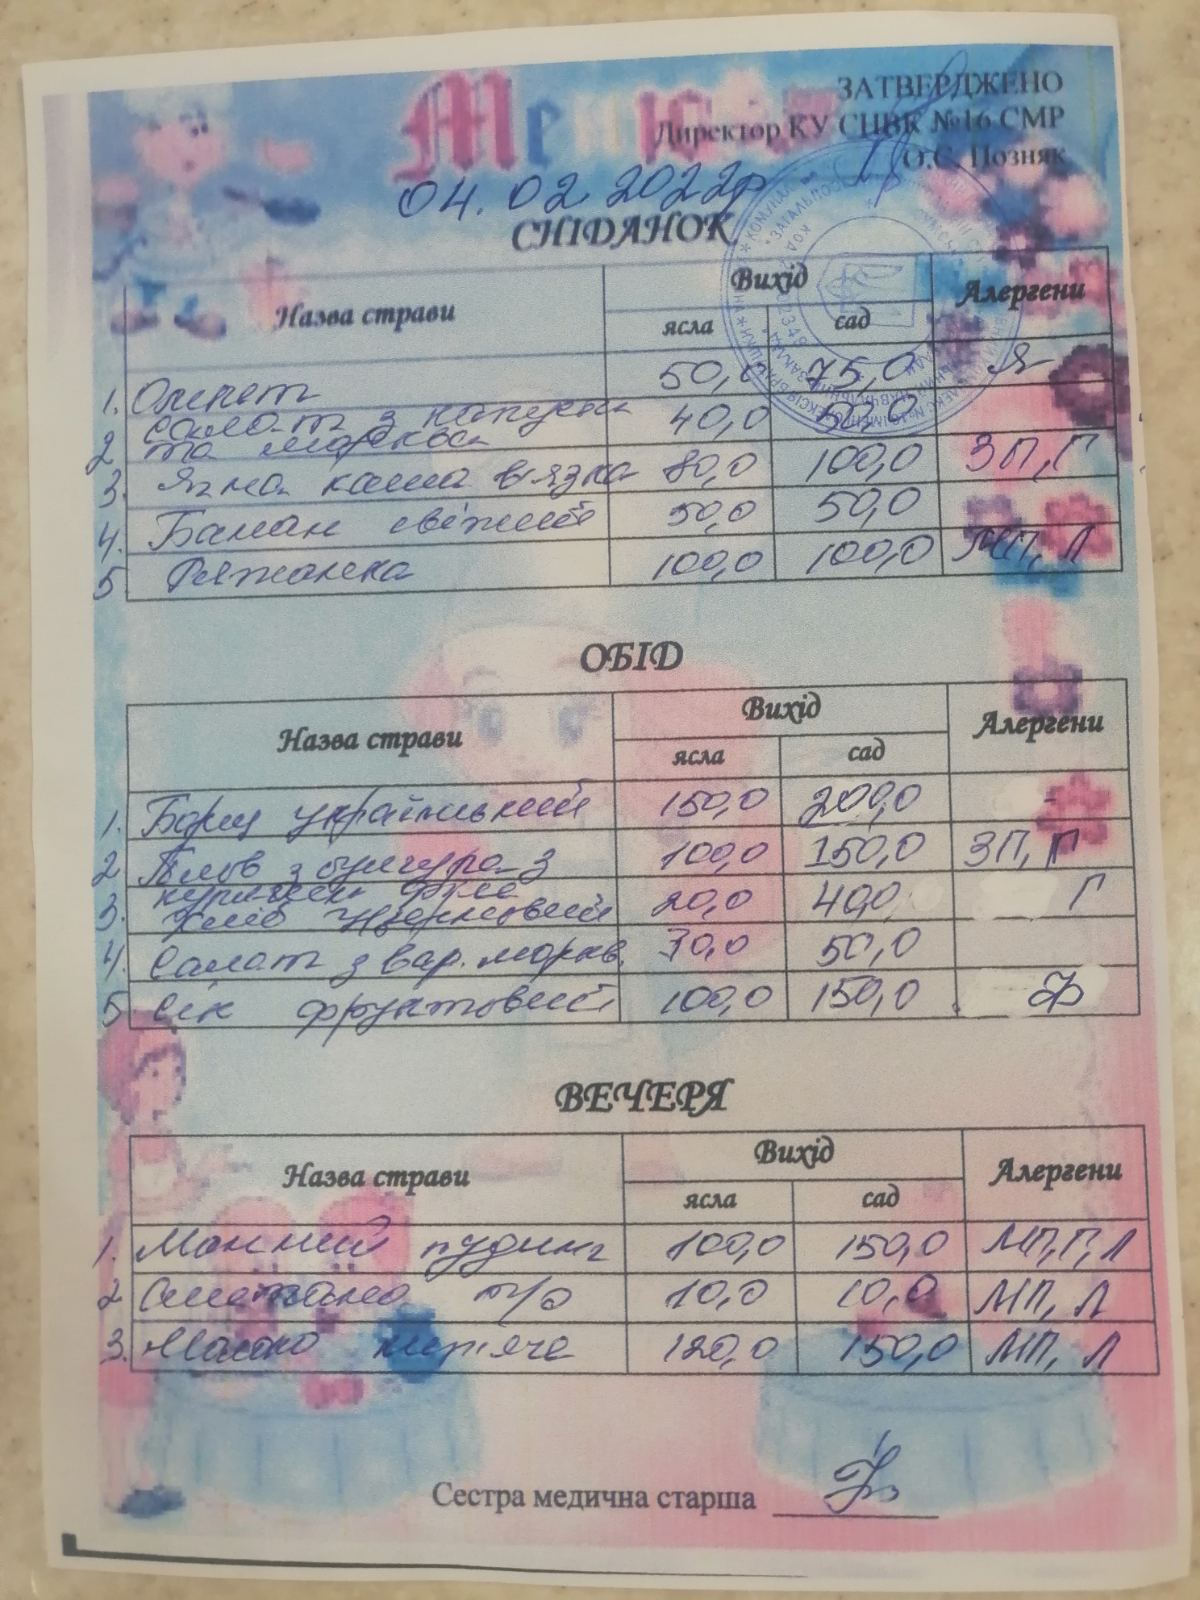 Меню
ЗАТВЕРДЖЕНО
Директор КУ СПВК №16 СМР
О.С. Позняк
04.02.2022р
СНІДАНОК
Назва страви Вихід Алергени
ясла сад
1. Омлет 50,0 75,0 Я
2 Салат з капусти та моркви 40,0
3. Ячна каша в'язка 80,0 100,0 ЗП, Г
4. Банан свіжий 50,0 50,0
5 Ряжанка 100,0 100,0 МП, Л
ОБІД
Назва страви Вихід Алергени
ясла сад
1. Борщ український 150,0 200,0 -
2 Плов з булгура з курячим філе 100,0 150,0 ЗП, Г
3. Хліб цільнозерновий 20,0 40,0 Г
4. Салат з вар. моркв. 30,0 50,0
5 Сік фруктовий 100,0 150,0 Ф
ВЕЧЕРЯ
Назва страви Вихід Алергени
ясла сад
1. Манний пудинг 100,0 150,0 МП, Г, Л
2 Сметана т/о 10,0 10,0 МП, Л
3. Молоко кип'яче 120,0 150,0 МП, Л
Сестра медична старша